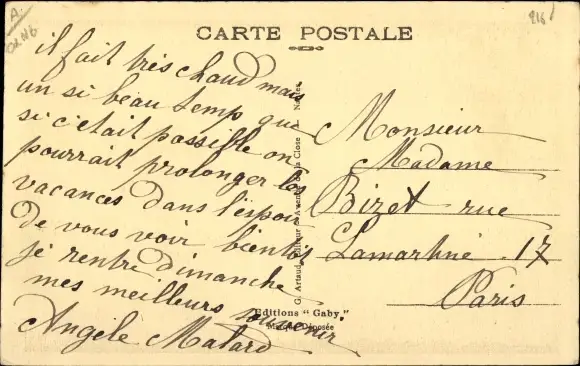 CARTE POSTALE
A.
ORNB
216
il fait très chaud mais
un si beau temp que
si c'était possible on
pourrait prolonger les
vacances dans l'espoir
de vous voir bientôt
je rentre dimanche
mes meilleurs souvenir
Angèle Malard
Monsieur
Madame
Bizet rue
Lamartine 17
Paris
G. Artaud, Editeur de la Close Nantes
Editions "Gaby"
Marque Déposée